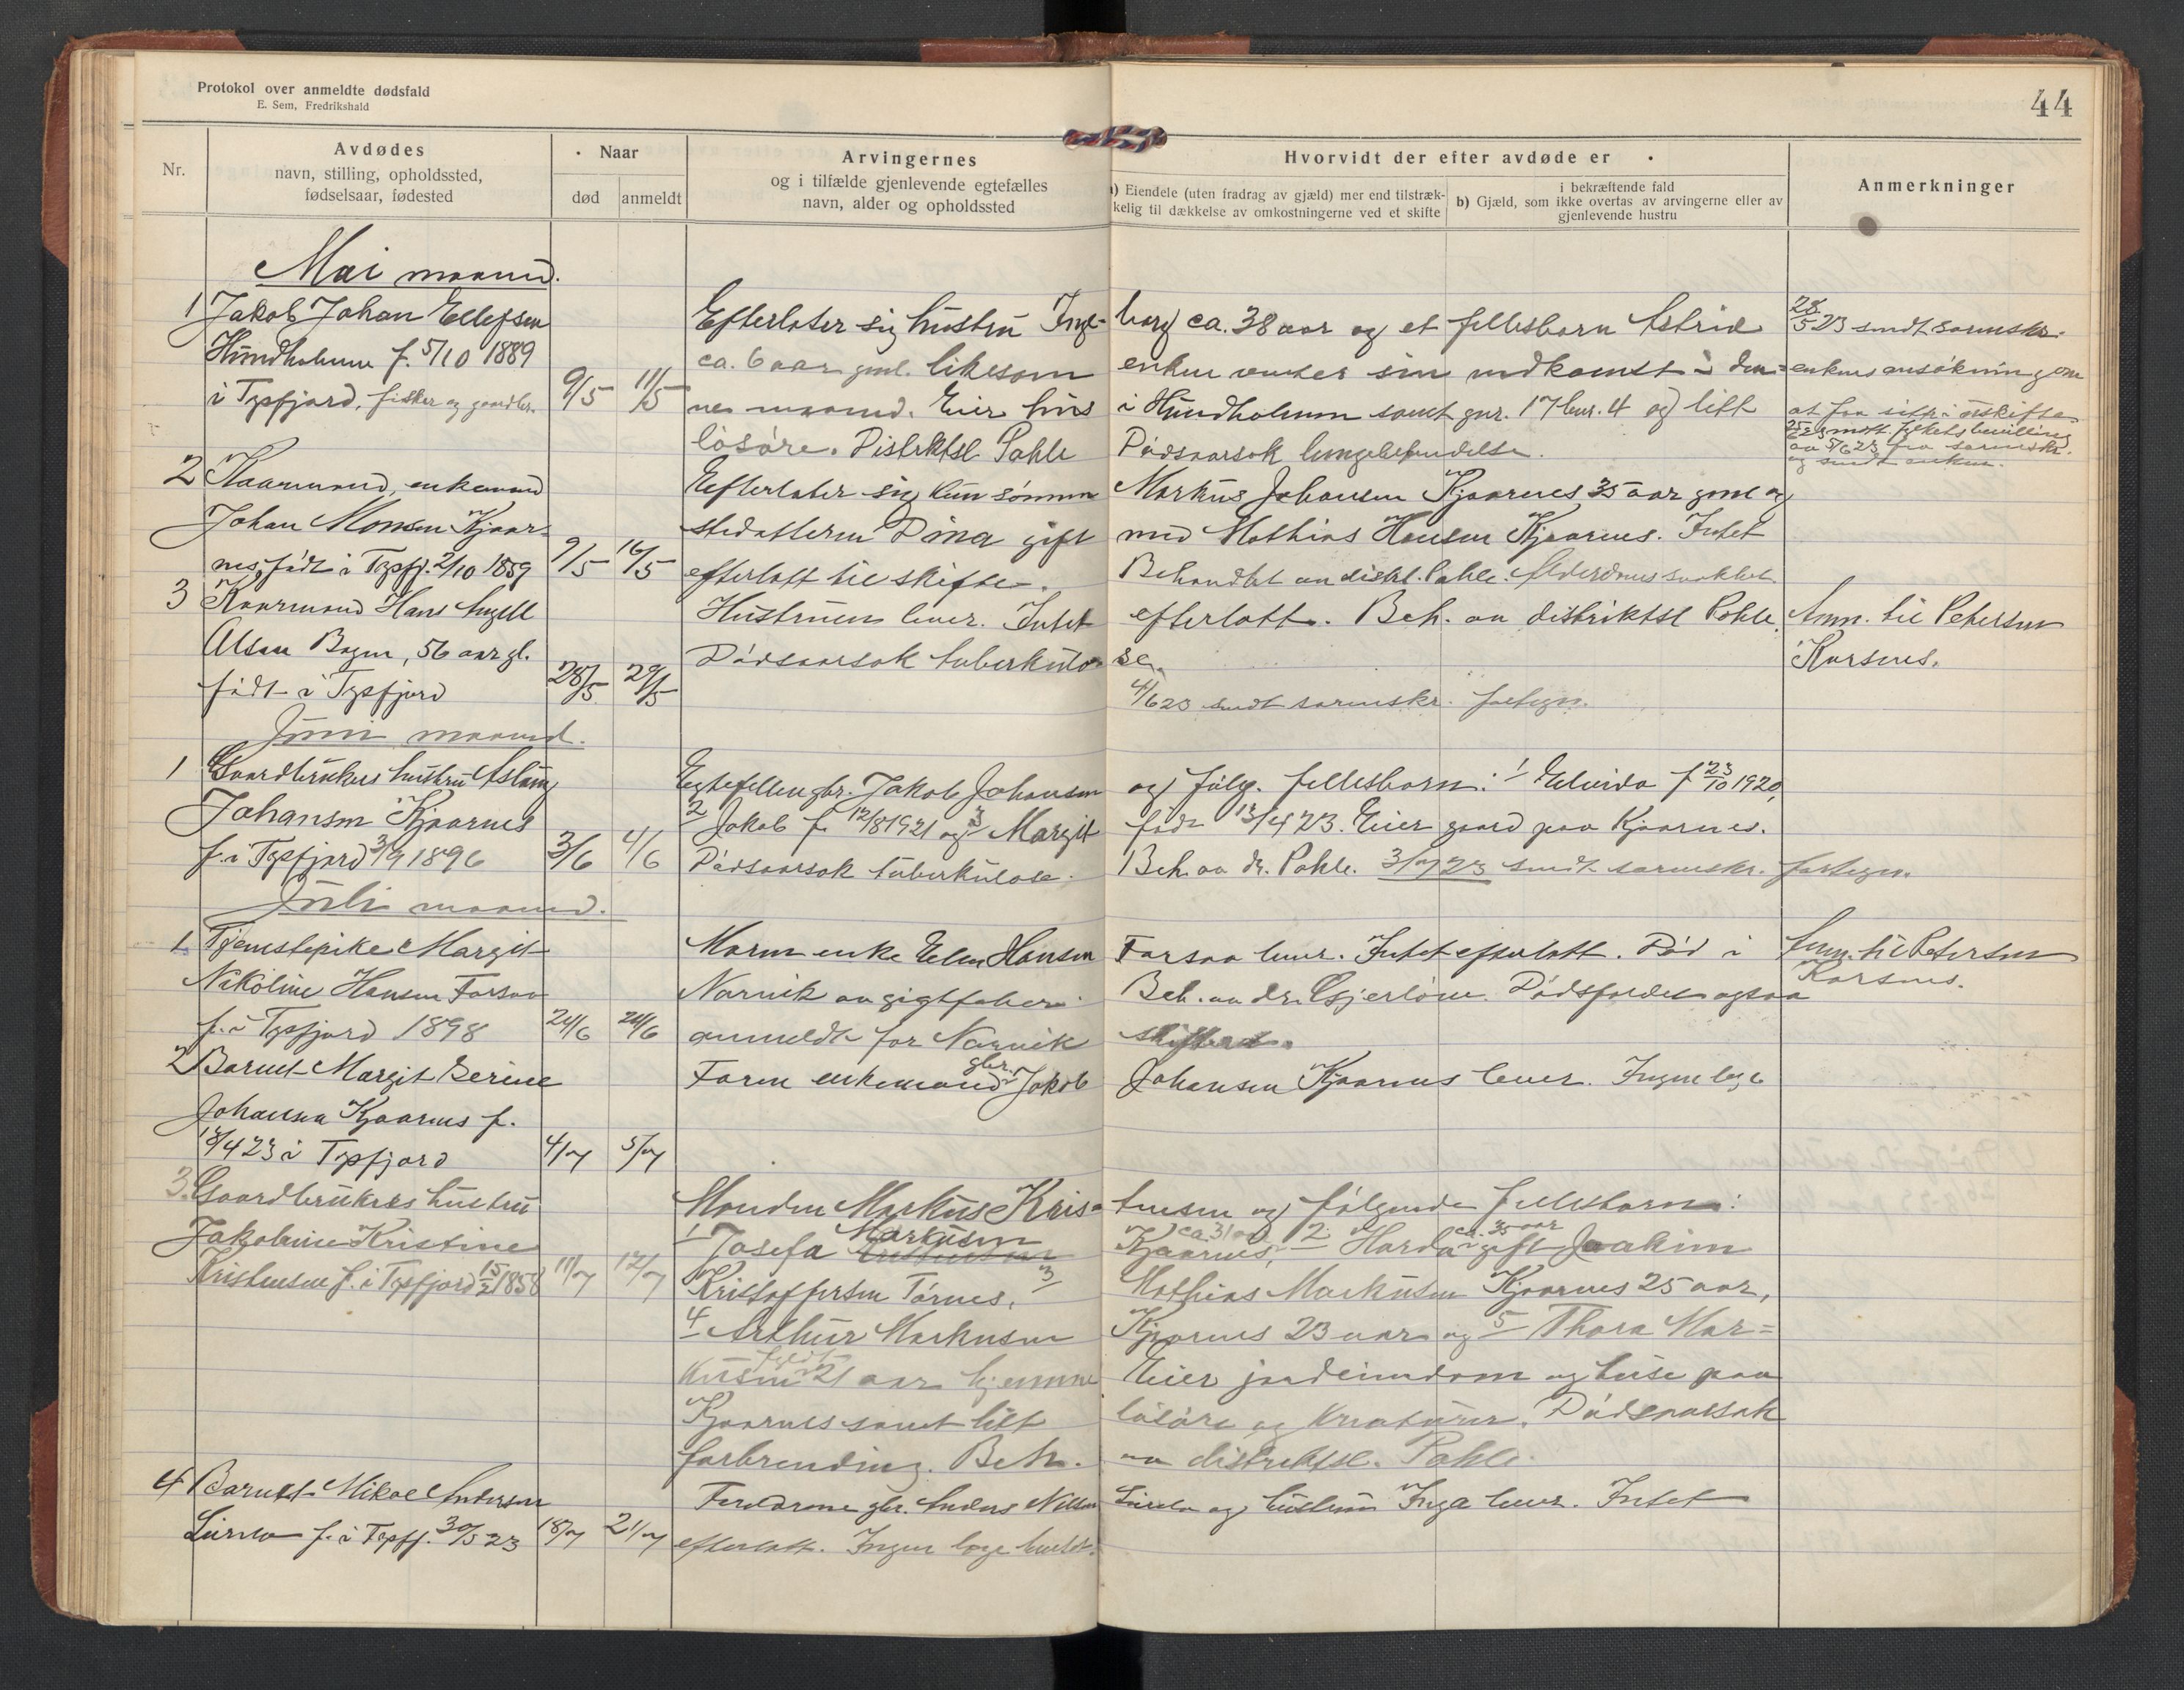 Protokol over anmeldte dødsfald
E. Sem, Fredrikshald
44
Nr.
Avdødes
navn, stilling, opholdssted,
fødselsaar, fødested
Naar
død anmeldt
Arvingernes
og i tilfælde gjenlevende egtefælles
navn, alder og opholdssted
Hvorvidt der efter avdøde er
a) Eiendele (uten fradrag av gjæld) mer end tilstræk-
kelig til dækkelse av omkostningerne ved et skifte
i bekræftende fald
b) Gjæld, som ikke overtas av arvingerne eller av
gjenlevende hustru
Anmerkninger
Mai maaned.
1 Jakob Johan Ellefsen Efterlater sig hustru Inge- borg ca. 38 aar og et fellesbarn Astrid 28/5 23 sendt sorenskr.
Hundholmen f. 5/10 1889 ca. 6 aar gml. likesom enken venter sin nedkomst i den- enkens ansökning om
i Tysfjord, fisker og gaardbr. 9/5 11/5 ne maaned. Eier hus i Hundholmen samt gnr. 17 bnr. 4 og litt at faa sitte i uskifte
lösöre. Distriktsl. Pahle Dödsaarsak lungebetendelse. 25/6 23 mott. fylkets bevilling
av 5/6 23 fra sorenskr.
og sendt enken.
2 Kaarmand, enkemand Efterlater sig kun sönnen Markus Johansen Kjaarnes 35 aar gml og
Johan Monsen Kjaar- stedatteren Dina gift med Mathias Hansen Kjaarnes. Intet
nes, født i Tysfj. 2/10 1859 9/5 16/5 efterlatt til skifte. Behandlet av distrl. Pahle. Alderdomssvakhet.
3 Kaarmand Hans Angell Hustruen lever. Intet efterlatt. Beh. av distriktsl Pahle. Anm. til Petersen
Olsen Bogen, 56 aar gl. Dödsaarsak tuberkulo se. Korsnes.
födt i Tysfjord 28/5 29/5 4/6 23 sendt sorenskr. fortegn.
Juni maaned.
1 Gaardbrukers hustru Aslaug Egtefellen gbr. Jakob Johansen og fölg. fellesbarn: 1 Elvida f. 23/10 1920,
Johansen Kjaarnes 2 Jakob f. 12/8 1921 og 3 Margit födt 13/4 23. Eier gaard paa Kjaarnes.
f. i Tysfjord 3/9 1896 3/6 4/6 Dödsaarsak tuberkulose. Beh. av dr. Pahle. 3/7 23 sendt sorenskr. fortegn.
Juli maaned.
1 Tjenestepike Margit Moren enke Elen Hansen Forsaa lever. Intet efterlatt. Död i Anm. til Petersen
Nikoline Hansen Forsaa Narvik av gigtfeber. Beh. av dr. Gjerlöw. Dödsfaldet ogsaa Korsnes.
f. i Tysfjord 1898 24/6 24/6 anmeldt for Narvik skifteret.
2 Barnet Margit Serine Faren enkemand gbr. Jakob Johansen Kjaarnes lever. Ingen lege
Johansen Kjaarnes f.
13/4 23 i Tysfjord 4/7 5/7
3. Gaardbrukers hustru Manden Markus Kris- tensen og fölgende fellesbarn:
Jakobine Kristine 1 Josefa Markusen Kjaarnes, ca 31 aar 2 Harda ca. 35 aar gift Joakim
Kristensen f. i Tysfjord 15/2 1858 11/7 12/7 Kristoffersen Törnes, 3 Mathias Markusen Kjaarnes 25 aar,
4 Arthur Markusen Kjaarnes 23 aar og 5 Thora Mar-
kusen 21 aar hjemme Eier jordeiendom og huse paa
Kjaarnes samt litt lösöre og kreaturer. Dödsaarsak
forbrending. Beh. av distriktsl. Pahle.
4 Barnet Mikael Andersen Foreldrene gbr. Anders Nilsen og hustru Inga lever. Intet
f. i Tysfj. 30/5 23 18/7 21/7 efterlatt. Ingen lege